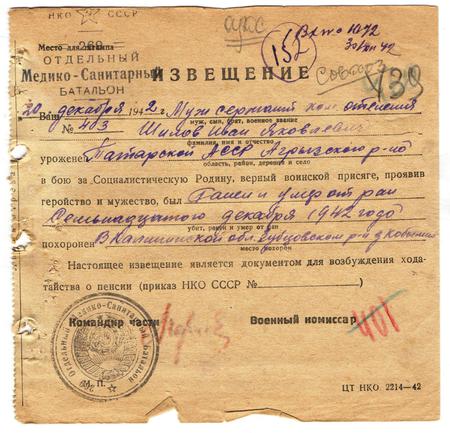 НКО ☆ СССР
Место для штампа
269
ОТДЕЛЬНЫЙ
Медико-Санитарный
БАТАЛЬОН
ИЗВЕЩЕНИЕ
Вх № 1072
30/XII 42
(152)
20 декабря 1942 г
№ 403
Ваш Муж сержант ком. отделения
муж, сын, брат, военное звание
Шилов Иван Яковлевич
фамилия, имя и отчество
уроженец Татарской АССР Агрызского р-на
область, район, деревня и село
в бою за Социалистическую Родину, верный воинской присяге, проявив
геройство и мужество, был Ранен и умер от ран
Семнадцатого декабря 1942 года
убит, ранен и умер от ран
похоронен В Калининской обл. Зубцовском р-н д
место похорон
Настоящее извещение является документом для возбуждения хода-
тайства о пенсии (приказ НКО СССР №
)
Командир части
Военный комиссар
401
Отдельный Медико-Санитарный батальон
М. П.
ЦТ НКО. 2214—42